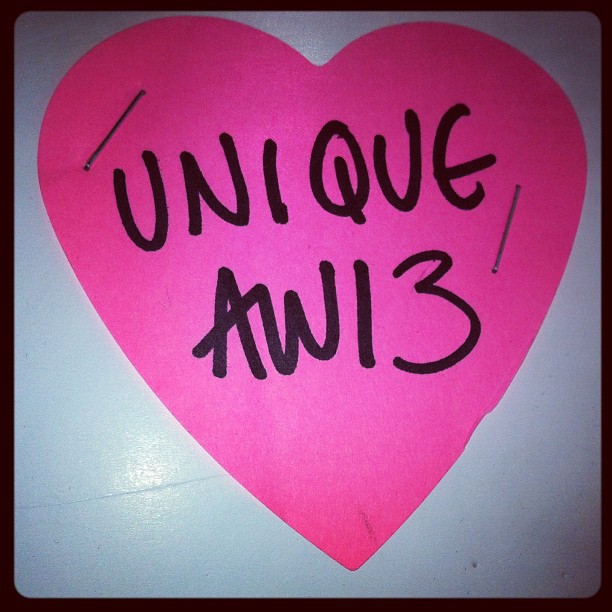 UNIQUE
AW13